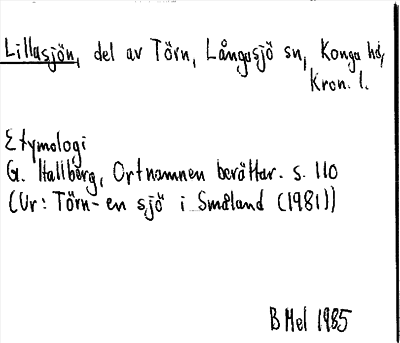 Lillasjön, del av Törn, Långasjö sn, Konga hd,
Kron. l.
Etymologi
G. Hallberg, Ortnamnen berättar. s. 110
(Ur: Törn - en sjö i Småland (1981))
B Mel 1985